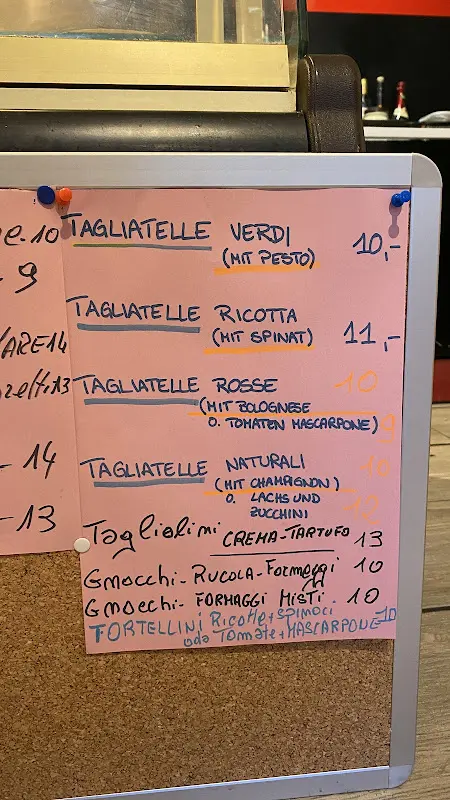 e.10
- 9
ARE 14
13
- 14
- 13
TAGLIATELLE VERDI 10,-
(MIT PESTO)
TAGLIATELLE RICOTTA
(MIT SPINAT) 11,-
TAGLIATELLE ROSSE 10
(MIT BOLOGNESE
O. TOMATEN MASCARPONE) 9
TAGLIATELLE NATURALI 10
(MIT CHAMPIGNON)
O. LACHS UND 12
ZUCCHINI
Tagliolini CREMA-TARTUFO 13
Gnocchi-RUCOLA-Formaggi 10
Gnocchi- FORMAGGI MISTI. 10
TORTELLINI Ricotta + SPINACI
oda Tomate + MASCARPONE 10